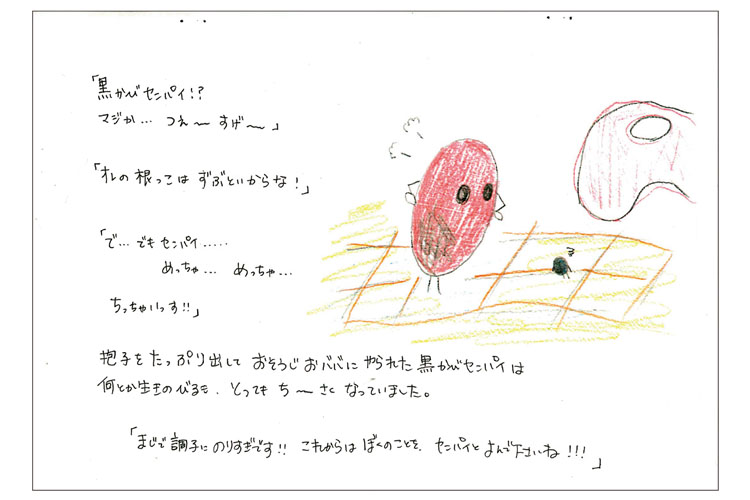 「黒かびセンパイ!?
マジか… つえ〜 すげ〜」
「オレの根っこは ずぶといからな!」
「で… でもセンパイ‥‥‥
めっちゃ… めっちゃ…
ちっちゃいっす!!」
抱子をたっぷり出して おそうじおババに やられた黒かびセンパイは
何とか生きのびるも、とっても ち〜さく なっていました。
「まじで調子にのりすぎです!! これからは ぼくのことを、センパイと よんで下さいね!!!」